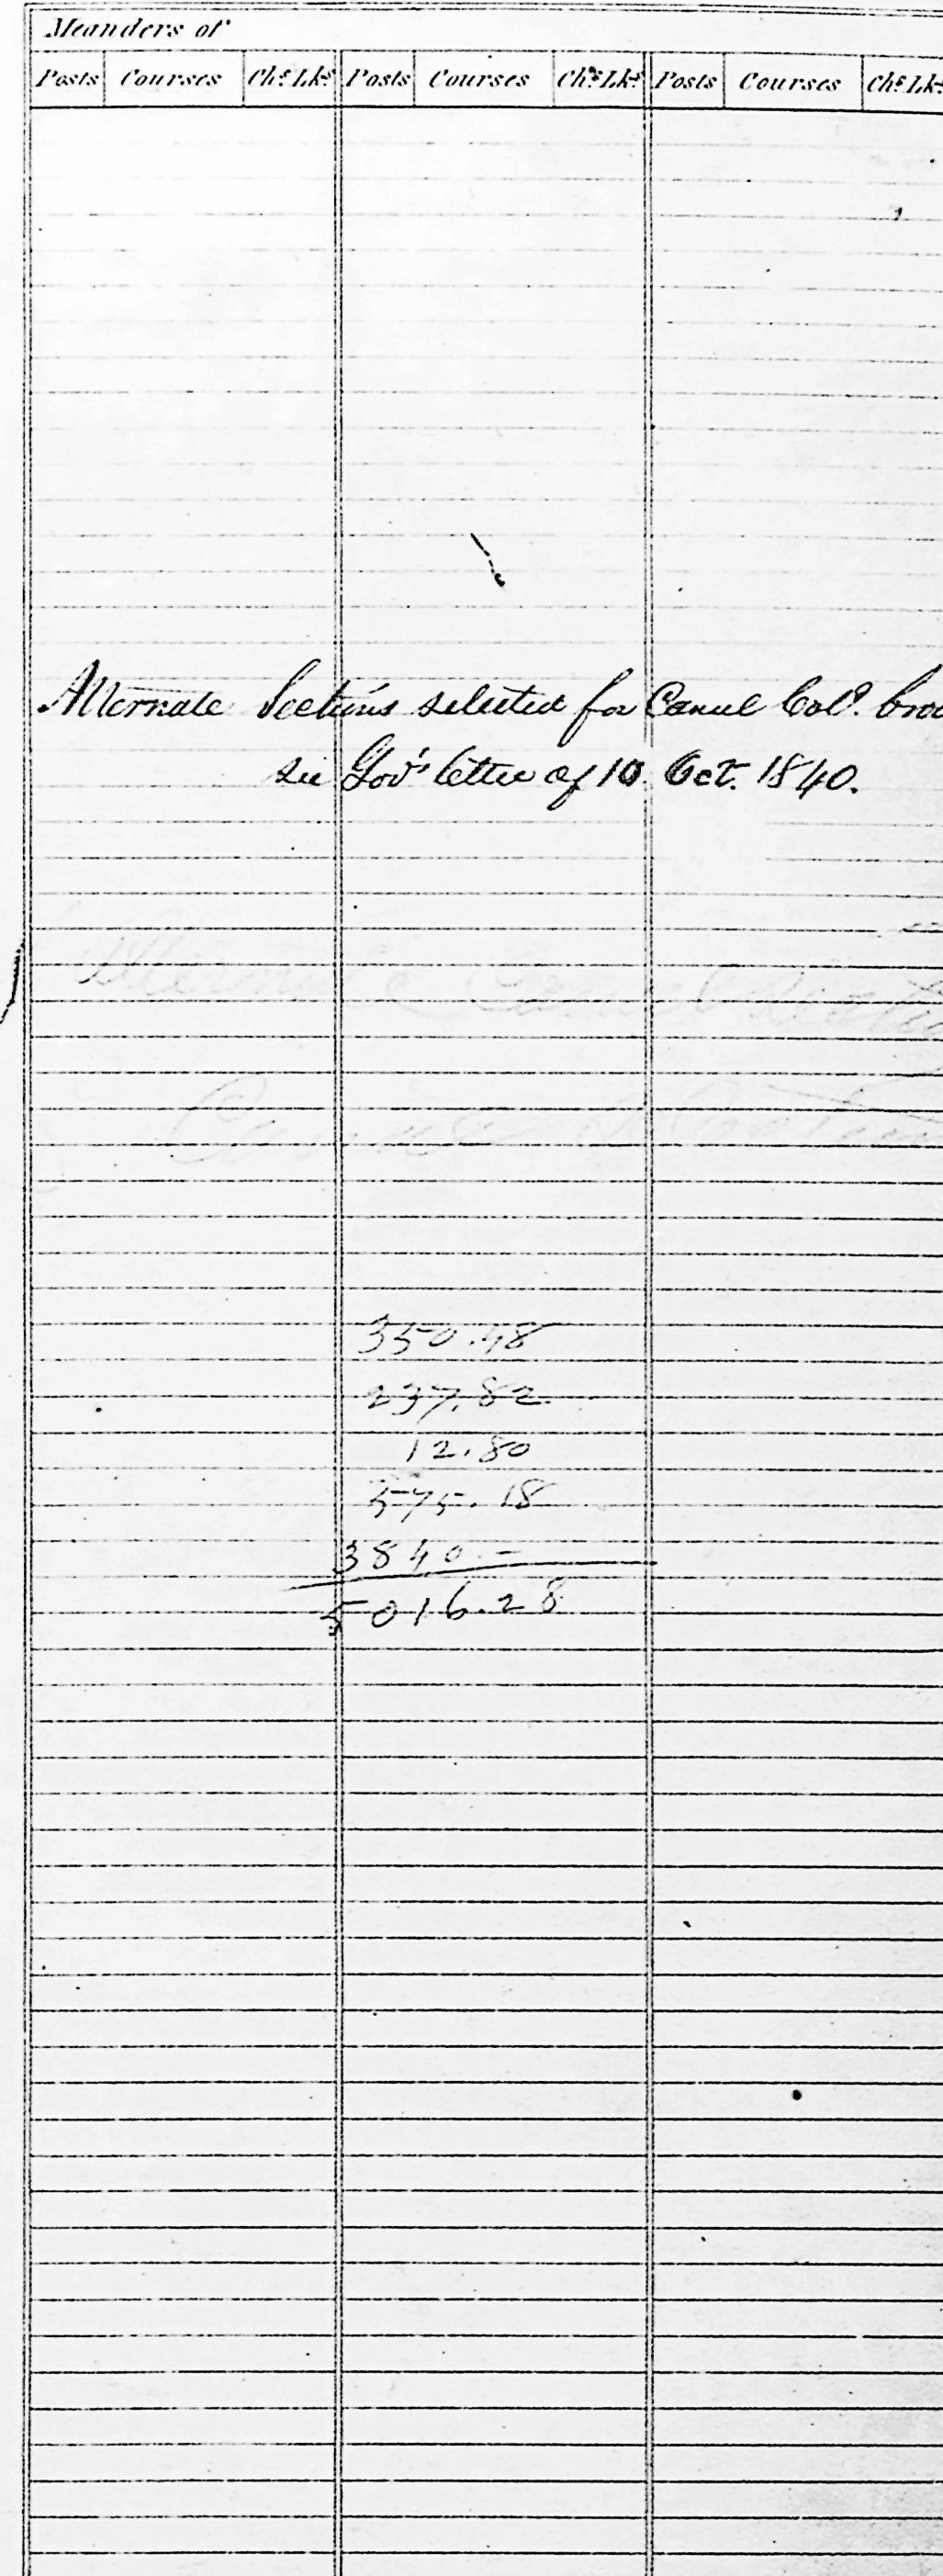 Meanders of
Posts Courses Chs. Lks. Posts Courses Chs. Lks. Posts Courses Chs. Lks.
Alternate Sections selected for Canal
see Gov's letter of 10. Oct. 1840.
Alternate Canal
Canal
350.48
237.82
12.80
575.18
3840.-
5016.28